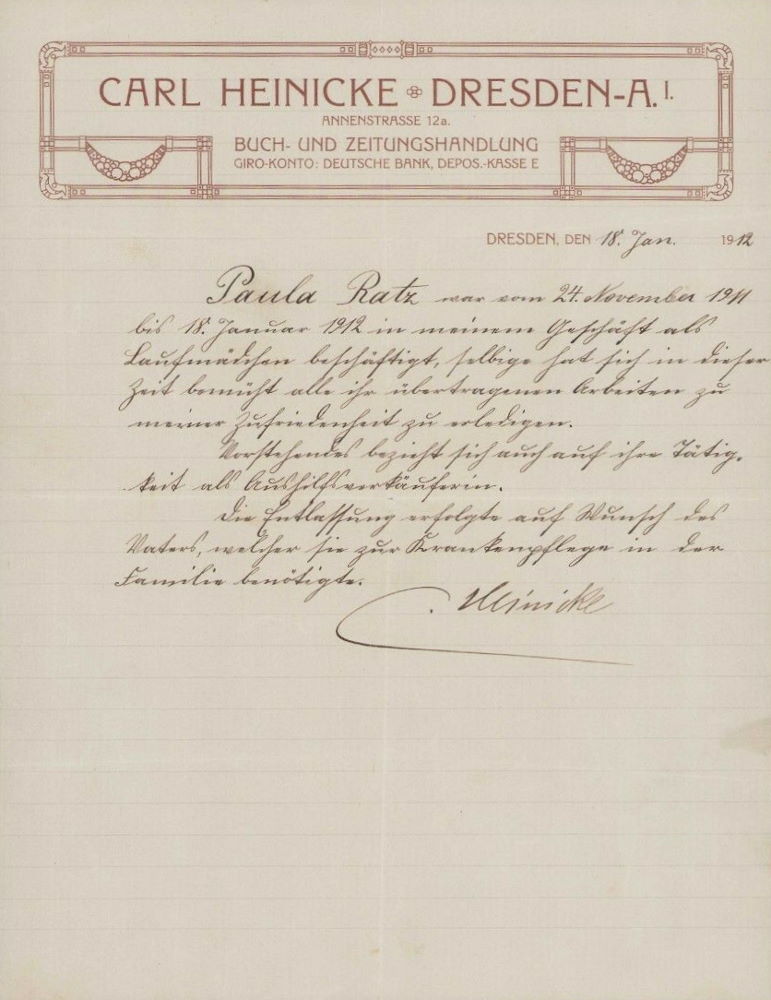 CARL HEINICKE DRESDEN-A. I.
ANNENSTRASSE 12a.
BUCH- UND ZEITUNGSHANDLUNG
GIRO-KONTO: DEUTSCHE BANK, DEPOS.-KASSE E
DRESDEN, DEN 18. Jan. 1912
Paula Ratz war vom 24. November 1911
bis 18. Januar 1912 in meinem Geschäft als
Laufmädchen beschäftigt, selbige hat sich in dieser
Zeit bemüht alle ihr übertragenen Arbeiten zu
meiner Zufriedenheit zu erledigen.
Vorstehendes bezieht sich auch auf ihre Tätig-
keit als Aushilfsverkäuferin.
Die Entlassung erfolgte auf Wunsch des
Vaters, welcher sie zur Krankenpflege in der
Familie benötigte.
C. Heinicke